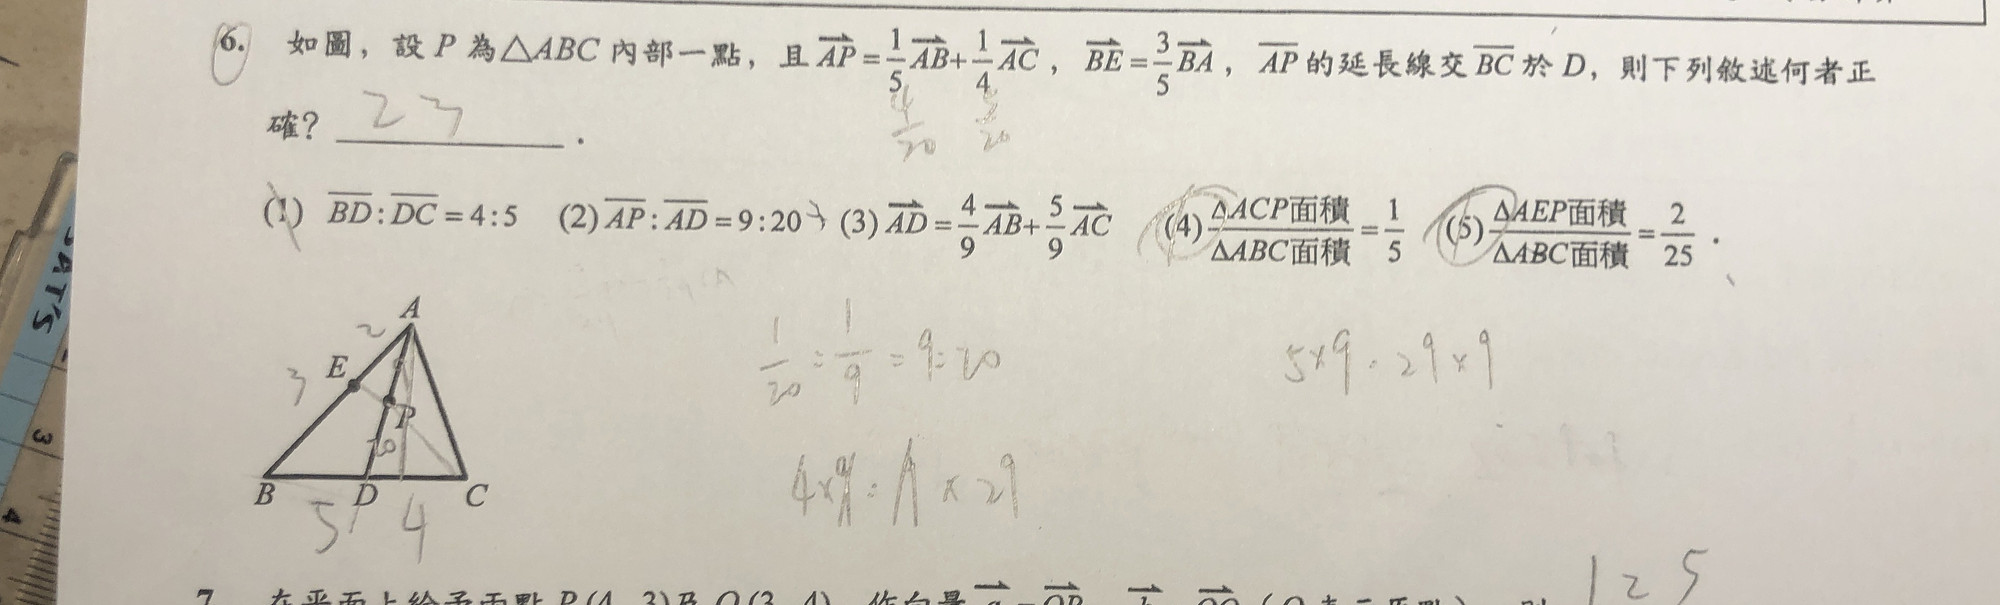 6. 如圖，設 P 為△ABC 內部一點，且 AP = 1/5 AB + 1/4 AC，BE = 3/5 BA，AP 的延長線交 BC 於 D，則下列敘述何者正
確？ 2 3 .
4/20 5/20
(1) BD : DC = 4 : 5 (2) AP : AD = 9 : 20 (3) AD = 4/9 AB + 5/9 AC (4) ΔACP面積/ΔABC面積 = 1/5 (5) ΔAEP面積/ΔABC面積 = 2/25 .
A
2
E
3
P
B D C
5 4
1/20 : 1/9 = 9 : 20
5×9 . 29×9
7. 在平面上給予兩點 P(4, 3)及 Q(3, 4)，作向量
1 2 5